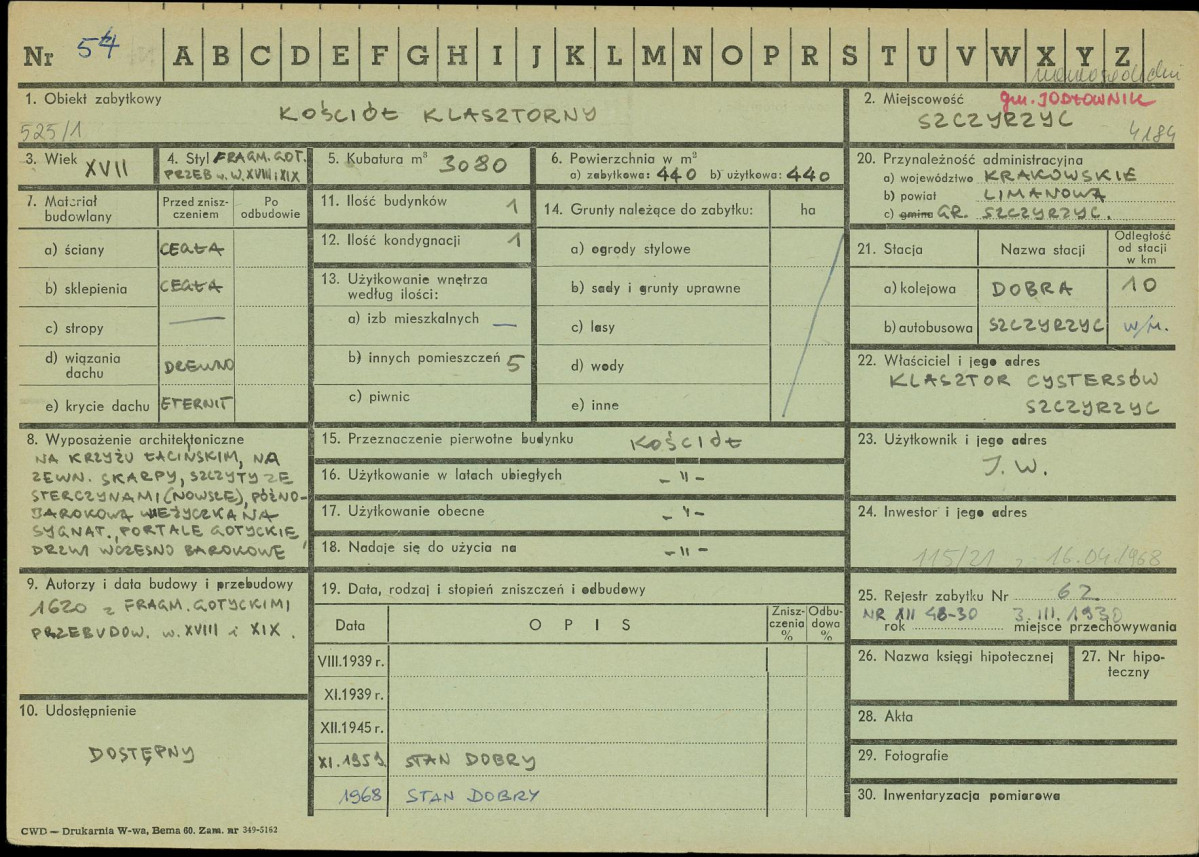 Nr 54 A B C D E F G H I J K L M N O P R S T U V W X Y Z
nowosądeckie
1. Obiekt zabytkowy
KOŚCIÓŁ KLASZTORNY
525/1
2. Miejscowość gm. JODŁOWNIK
SZCZYRZYC
4184
3. Wiek
XVII
4. Styl FRAGM. GOT.
PRZEB. w. W. XVIII i XIX
5. Kubatura m³ 3080
6. Powierzchnia w m²
a) zabytkowa: 440 b) użytkowa: 440
20. Przynależność administracyjna
a) województwo KRAKOWSKIE
b) powiat LIMANOWA
c) gmina GR. SZCZYRZYC.
7. Materiał budowlany
Przed zniszczeniem
Po odbudowie
a) ściany CEGŁA
b) sklepienia CEGŁA
c) stropy —
d) wiązania dachu DREWNO
e) krycie dachu ETERNIT
11. Ilość budynków 1
12. Ilość kondygnacji 1
13. Użytkowanie wnętrza
według ilości:
a) izb mieszkalnych —
b) innych pomieszczeń 5
c) piwnic
14. Grunty należące do zabytku: ha
a) ogrody stylowe
b) sady i grunty uprawne
c) lasy
d) wody
e) inne
21. Stacja Nazwa stacji Odległość od stacji w km
a) kolejowa DOBRA 10
b) autobusowa SZCZYRZYC w/m.
22. Właściciel i jego adres
KLASZTOR CYSTERSÓW
SZCZYRZYC
8. Wyposażenie architektoniczne
NA KRZYŻU ŁACIŃSKIM, NA
ZEWN. SKARPY, SZCZYTY ZE
STERCZYNAMI (NOWSZE), PÓŹNO-
BAROKOWA WIEŻYCZKA NA
SYGNAT., PORTALE GOTYCKIE,
DRZWI WCZESNO BAROKOWE
15. Przeznaczenie pierwotne budynku KOŚCIÓŁ
16. Użytkowanie w latach ubiegłych - " -
17. Użytkowanie obecne - " -
18. Nadaje się do użycia na - " -
23. Użytkownik i jego adres
J. W.
24. Inwestor i jego adres
115/21 z 16.04.1968
9. Autorzy i data budowy i przebudowy
1620 z FRAGM. GOTYCKIMI
PRZEBUDOW. w. XVIII i XIX.
19. Data, rodzaj i stopień zniszczeń i odbudowy
Data OPIS Zniszczenia % Odbudowa %
VIII.1939 r.
XI.1939 r.
XII.1945 r.
XI.1959. STAN DOBRY
1968 STAN DOBRY
25. Rejestr zabytku Nr 62
NR XII 48-30 3. III. 1930
rok miejsce przechowywania
26. Nazwa księgi hipotecznej
27. Nr hipoteczny
10. Udostępnienie
DOSTĘPNY
28. Akta
29. Fotografie
30. Inwentaryzacja pomiarowa
CWD — Drukarnia W-wa, Bema 60. Zam. nr 349-5162